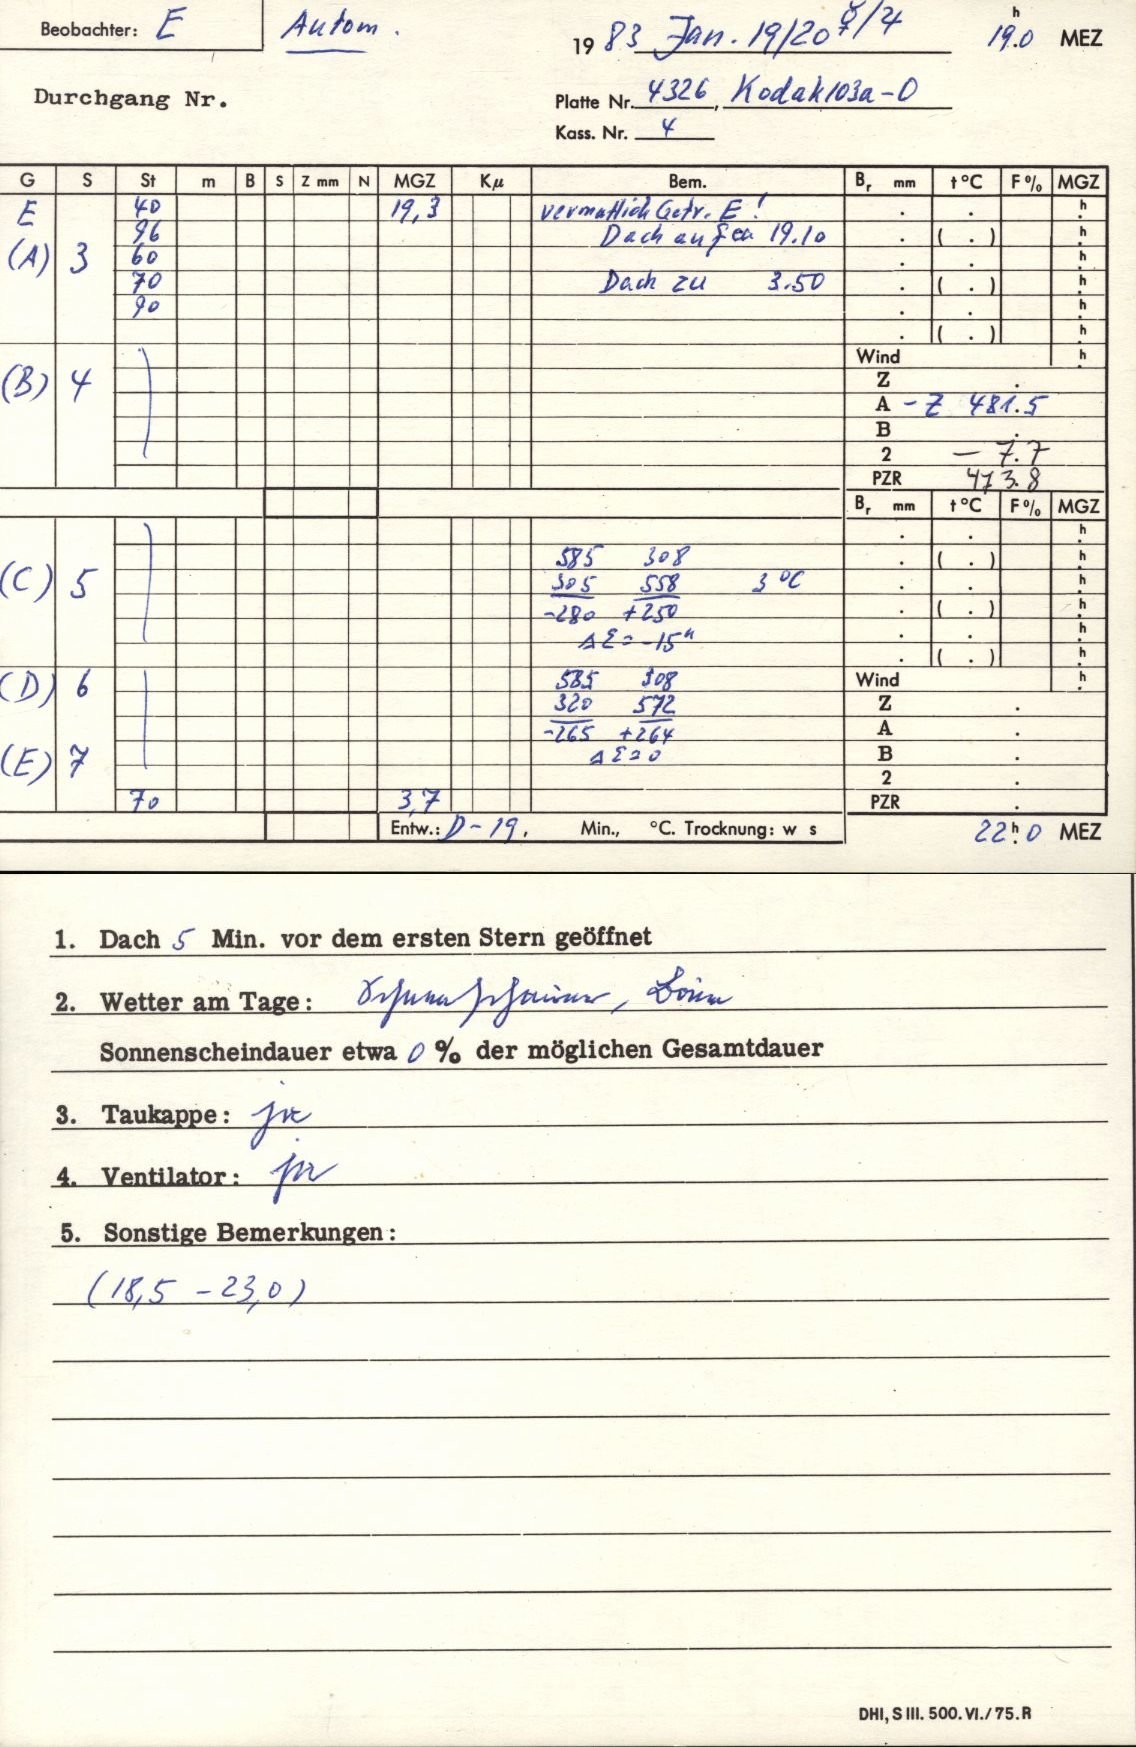 Beobachter: E Autom. 19 83 Jan. 19/20 ☿/♃ 19.0 h MEZ
Durchgang Nr. Platte Nr. 4326, Kodak 103a-O
Kass. Nr. 4
G S St m B S Z mm N MGZ Kμ Bem. Br mm t °C F % MGZ
E 40 19,3 vermutlich Getr. E! . . h
96 Dach auf 19.10 . ( . ) h
(A) 3 60 . . h
70 Dach zu 3.50 . ( . ) h
90 . . h
. ( . ) h
Wind h
(B) 4 Z .
A - Z 481.5
B .
2 - 7.7
PZR 473.8
Br mm t °C F % MGZ
. . h
585 308 . ( . ) h
(C) 5 305 558 3 °C . . h
-280 +250 . ( . ) h
ΔΣ = -15" . . h
. ( . ) h
(D) 6 585 308 Wind h
320 572 Z .
-265 +264 A .
(E) 7 ΔΣ = 0 B .
2 .
70 3,7 PZR .
Entw.: D-19, Min., °C. Trocknung: w s 22 h 0 MEZ
1. Dach 5 Min. vor dem ersten Stern geöffnet
2. Wetter am Tage:
Sonnenscheindauer etwa 0 % der möglichen Gesamtdauer
3. Taukappe: ja
4. Ventilator: ja
5. Sonstige Bemerkungen:
(18,5 - 23,0)
DHI, S III. 500. VI./75. R